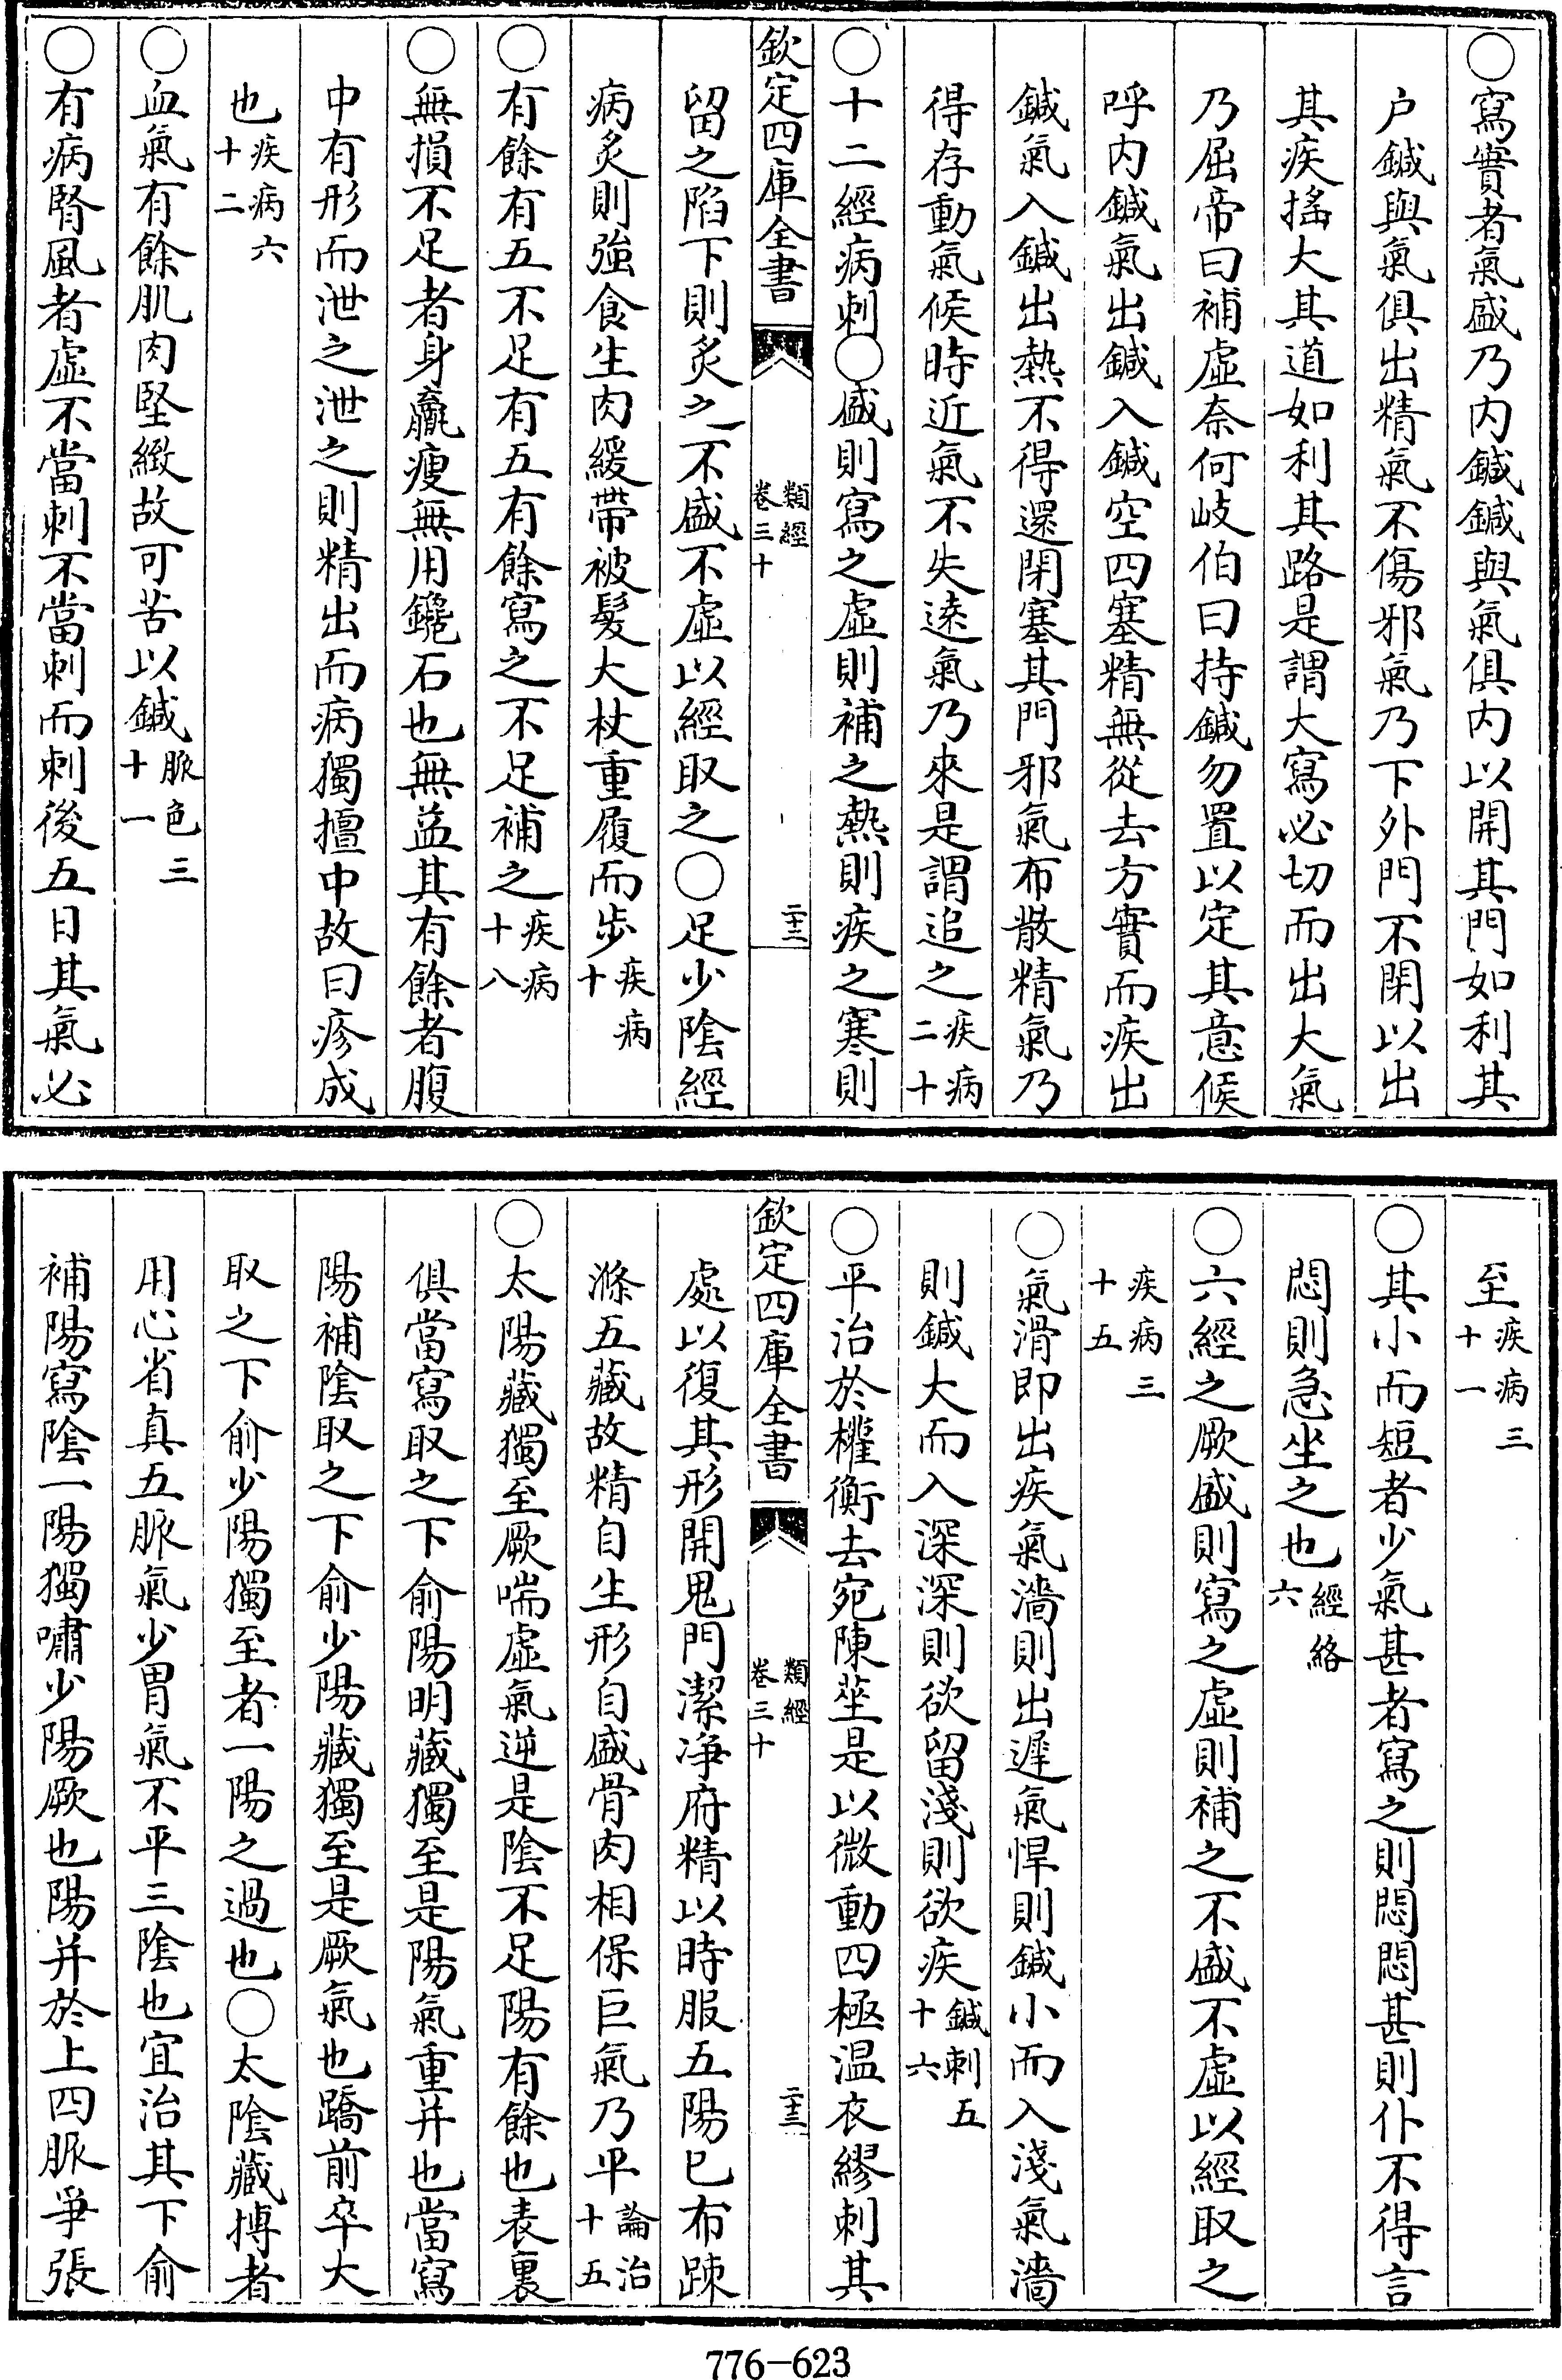 ○寫實者氣盛乃内鍼鍼與氣俱内以開其門如利其
户鍼與氣俱出精氣不傷邪氣乃下外門不閉以出
其疾搖大其道如利其路是謂大寫必切而出大氣
乃屈帝曰補虚奈何岐伯曰持鍼勿置以定其意候
呼内鍼氣出鍼入鍼空四塞精無從去方實而疾出
鍼氣入鍼出熱不得還閉塞其門邪氣布散精氣乃
得存動氣候時近氣不失逺氣乃來是謂追之疾病二十
○十二經病刺○盛則寫之虚則補之熱則疾之寒則
欽定四庫全書 類經卷三十 二十二
留之陷下則炙之不盛不虚以經取之○足少陰經
病炙則強食生肉緩帶被髮大杖重履而步疾病十
○有餘有五不足有五有餘寫之不足補之疾病十八
○無損不足者身羸瘦無用鑱石也無益其有餘者腹
中有形而泄之泄之則精出而病獨擅中故曰疹成
也疾病六十二
○血氣有餘肌肉堅緻故可苦以鍼脈色三十一
○有病腎風者虚不當刺不當刺而刺後五日其氣必
至疾病三十一
○其小而短者少氣甚者寫之則悶悶甚則仆不得言
悶則急坐之也經絡六
○六經之厥盛則寫之虚則補之不盛不虚以經取之
疾病三十五
○氣滑即出疾氣濇則出遲氣悍則鍼小而入淺氣濇
則鍼大而入深深則欲留淺則欲疾鍼刺五十六
○平治於權衡去宛陳莝是以微動四極温衣繆刺其
欽定四庫全書 類經卷三十 二十三
處以復其形開鬼門潔净府精以時服五陽已布疎
滌五藏故精自生形自盛骨肉相保巨氣乃平論治十五
○太陽藏獨至厥喘虚氣逆是陰不足陽有餘也表裏
俱當寫取之下俞陽明藏獨至是陽氣重并也當寫
陽補陰取之下俞少陽藏獨至是厥氣也蹻前卒大
取之下俞少陽獨至者一陽之過也○太陰藏搏者
用心省真五脈氣少胃氣不平三陰也宜治其下俞
補陽寫陰一陽獨嘯少陽厥也陽并於上四脈爭張
776-623